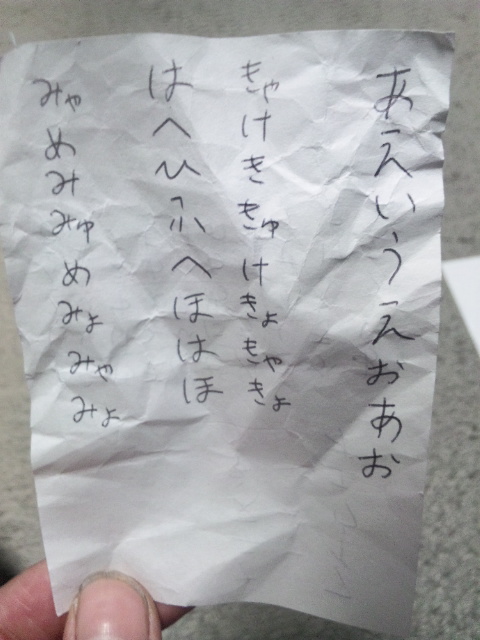 あえいうえおあお
きゃけききゅけきょきゃきょ
はへひふへほはほ
みゃめみみゅめみょみゃみょ